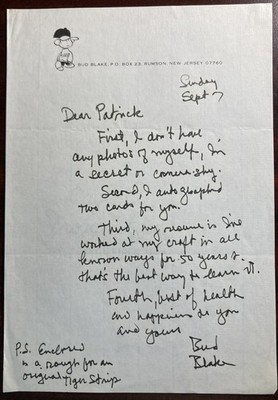 BUD BLAKE, P.O. BOX 23, RUMSON, NEW JERSEY 07760
Sunday
Sept 7
Dear Patrick
First, I don't have
any photos of myself, I'm
a secret or camera-shy.
Second, I autographed
two cards for you.
Third, my resume is I've
worked at my craft in all
known ways for 50 years &
that's the best way to learn it.
Fourth, best of health
and happiness to you
and yours
Bud
Blake
P.S. Enclosed
is a rough for an
original Tiger Strip